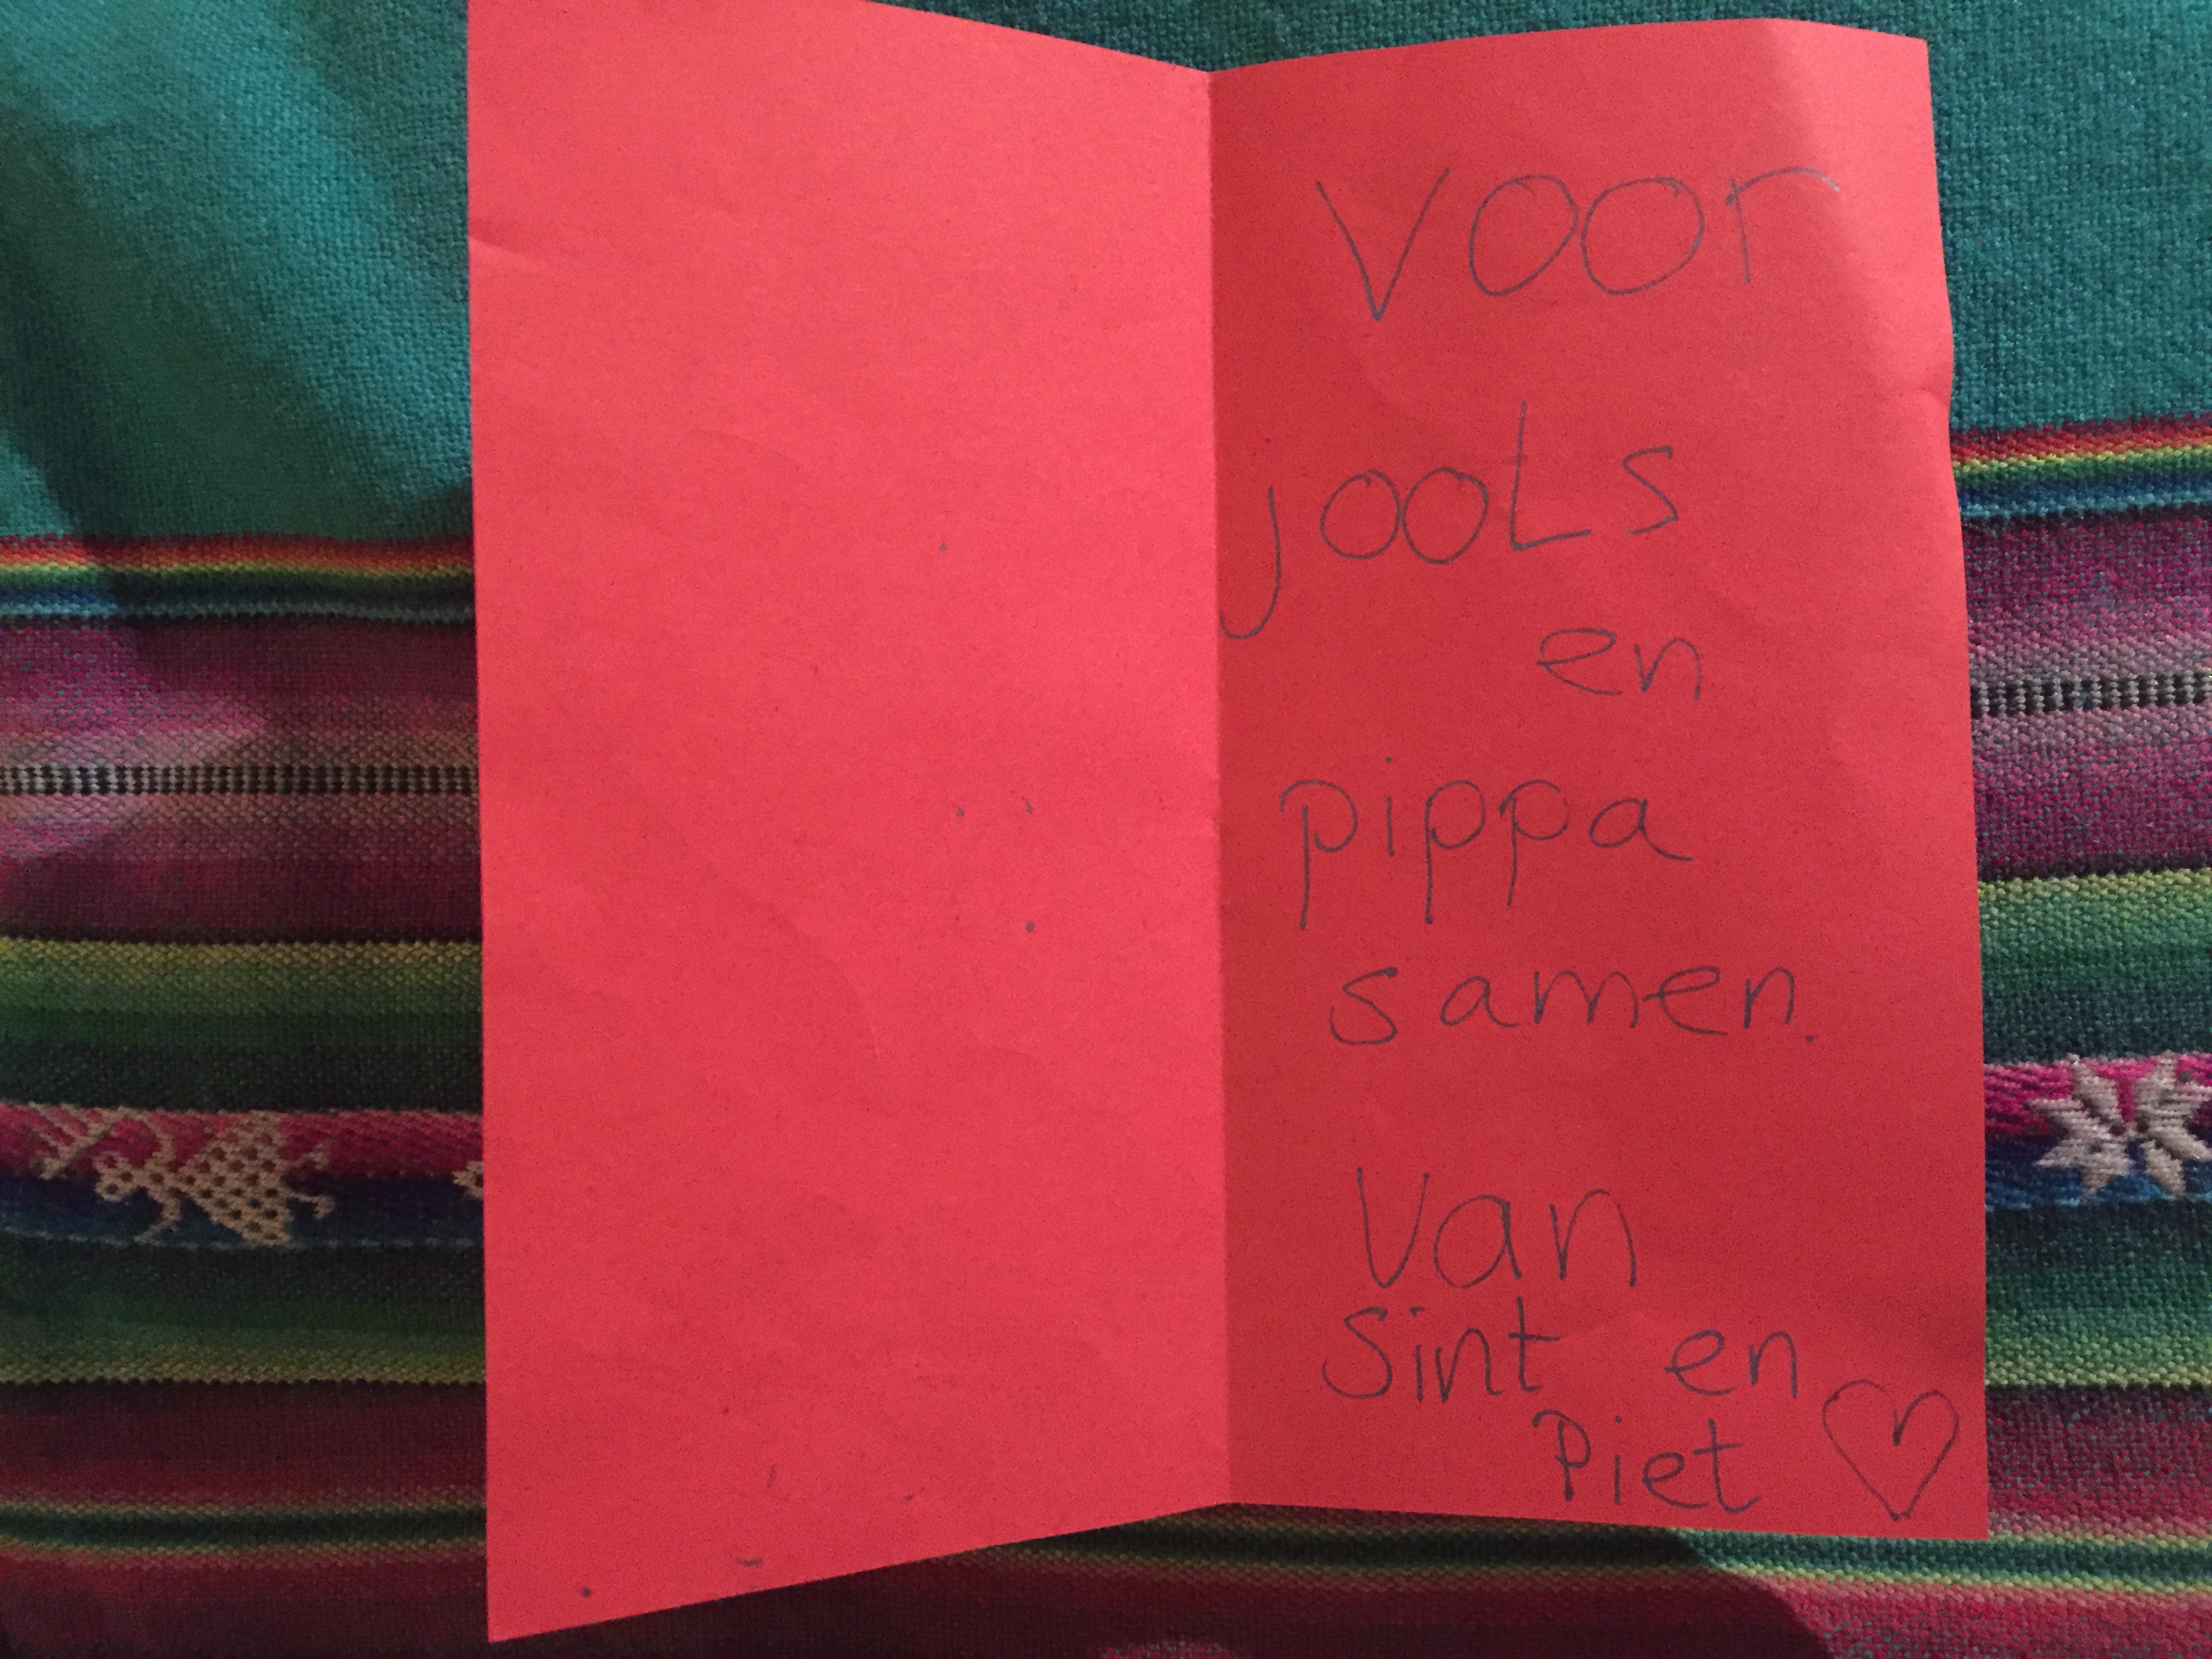 voor
jooLs
en
pippa
samen.
Van
Sint en
Piet